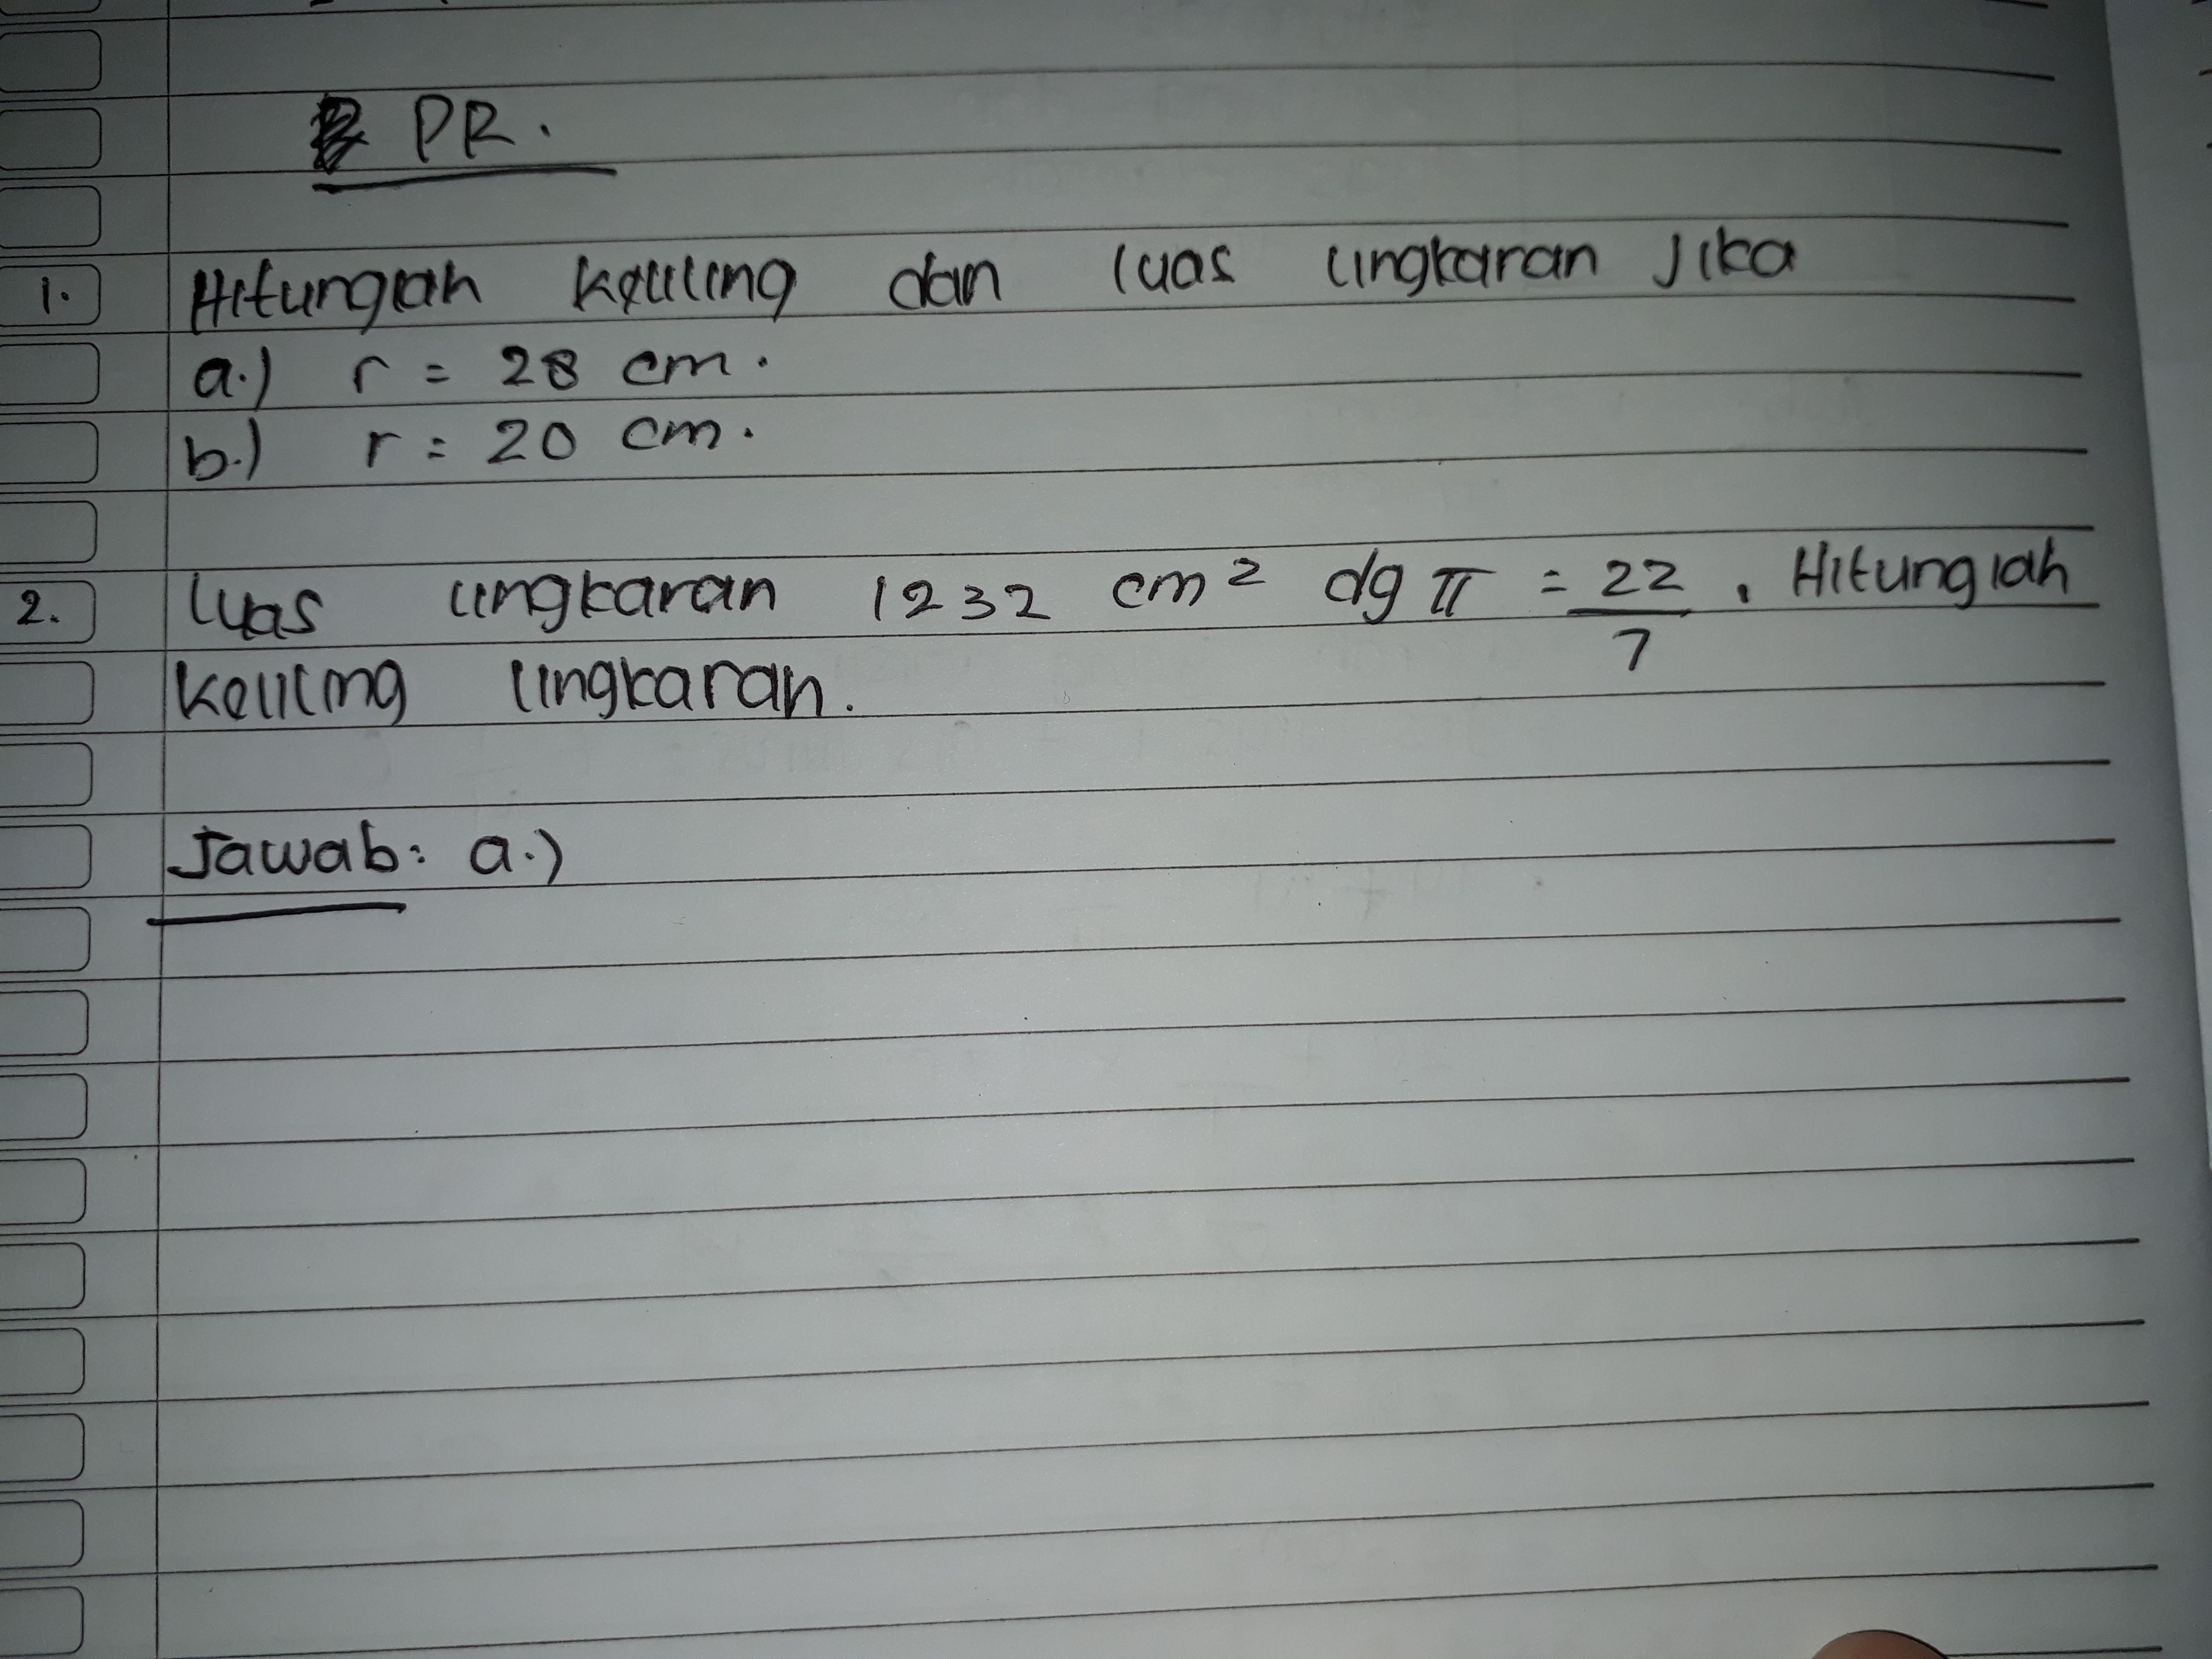 PR.
1. Hitunglah keliling dan luas lingkaran jika
a.) r = 28 cm.
b.) r = 20 cm.
2. Luas lingkaran 1232 cm² dg π = 22/7. Hitunglah
keliling lingkaran.
Jawab: a.)